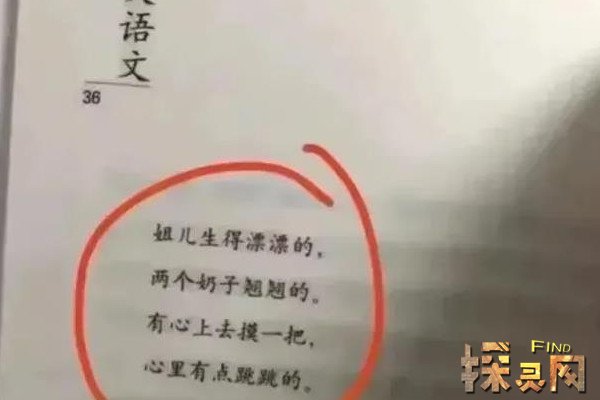 语文
36
姐儿生得漂漂的,
两个奶子翘翘的。
有心上去摸一把,
心里有点跳跳的。
FIND
探灵网